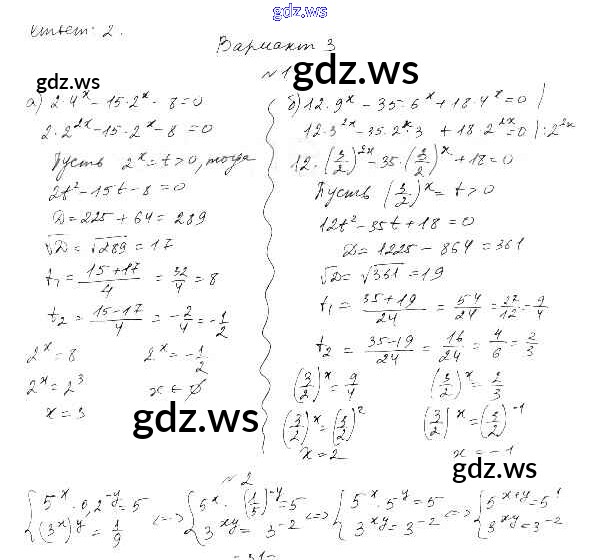 gdz.ws
Ответ: 2.
Вариант 3
gdz.ws
№1
gdz.ws
а) 2·4^x − 15·2^x − 8 = 0
2·2^{2x} − 15·2^x − 8 = 0
Пусть 2^x = t > 0, тогда
2t² − 15t − 8 = 0
D = 225 + 64 = 289
√D = √289 = 17
t₁ = (15+17)/4 = 32/4 = 8
t₂ = (15−17)/4 = −2/4 = −1/2
2^x = 8 2^x = −1/2
2^x = 2³ x ∈ ∅
x = 3
б) 12·9^x − 35·6^x + 18·4^x = 0 |
12·3^{2x} − 35·2^x·3 + 18·2^{2x} = 0 | : 2^{2x}
12·(3/2)^{2x} − 35·(3/2)^x + 18 = 0
Пусть (3/2)^x = t > 0
12t² − 35t + 18 = 0
D = 1225 − 864 = 361
√D = √361 = 19
t₁ = (35+19)/24 = 54/24 = 27/12 = 9/4
t₂ = (35−19)/24 = 16/24 = 4/6 = 2/3
(3/2)^x = 9/4 (3/2)^x = 2/3
(3/2)^x = (3/2)² (3/2)^x = (3/2)^{−1}
x = 2 x = −1
gdz.ws
gdz.ws
№2
{5^x · 0,2^{−y} = 5 <=> {5^x · (1/5)^{−y} = 5 <=> {5^x · 5^y = 5 <=> {5^{x+y} = 5¹
{(3^x)^y = 1/9 {3^{xy} = 3^{−2} {3^{xy} = 3^{−2} {3^{xy} = 3^{−2}
-31-